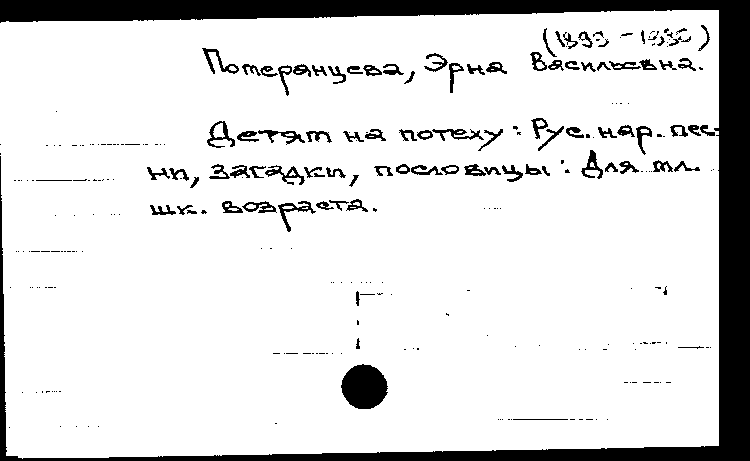 (1899 - 1980)
Померанцева, Эрна Васильевна.
Детям на потеху : Рус. нар. пес-
ни, загадки, пословицы : Для мл.
шк. возраста.